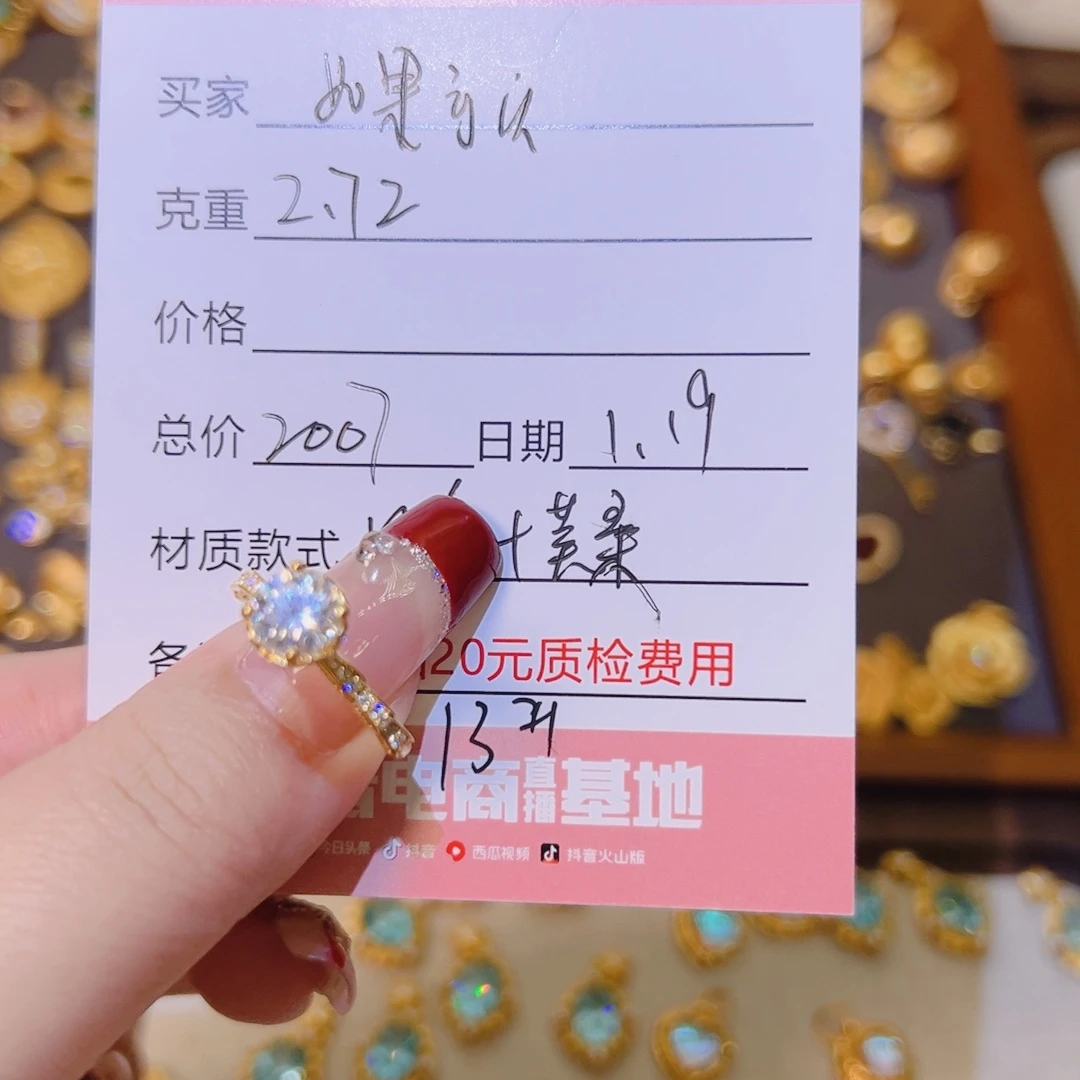 买家 如果
克重 2.72
价格
总价 2007 日期 1.19
材质款式 +莫桑
20元质检费用
13号
电商直播基地
今日头条 抖音 西瓜视频 抖音火山版